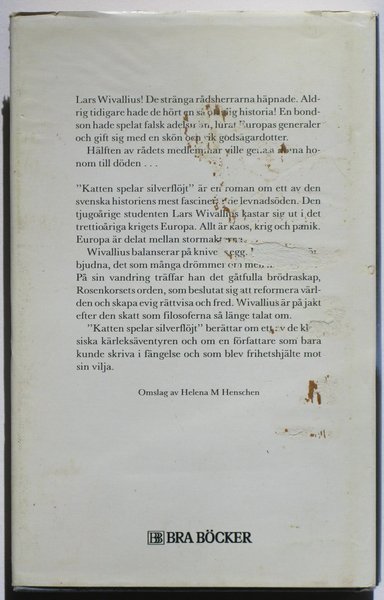 Lars Wivallius! De stränga rådsherrarna häpnade. Ald-
rig tidigare hade de hört en så historia! En bond-
son hade spelat falsk lurat Europas generaler
och gift sig med en skön och rik godsägardotter.
Hälften av rådets medlemmar ville genast döma ho-
nom till döden . . .
”Katten spelar silverflöjt” är en roman om ett av den
svenska historiens mest levnadsöden. Den
tjugoårige studenten Lars Wivallius kastar sig ut i det
trettioåriga krigets Europa. Allt är kaos, krig och panik.
Europa är delat mellan
Wivallius balanserar på
bjudna, det som många drömmer om men
På sin vandring träffar han det gåtfulla brödraskap,
Rosenkorsets orden, som beslutat sig att reformera värl-
den och skapa evig rättvisa och fred. Wivallius är på jakt
efter den skatt som filosoferna så länge talat om.
”Katten spelar silverflöjt” berättar om ett av de klas-
siska kärleksäventyren och om en författare som bara
kunde skriva i fängelse och som blev frihetshjälte mot
sin vilja.
Omslag av Helena M Henschen
BB BRA BÖCKER